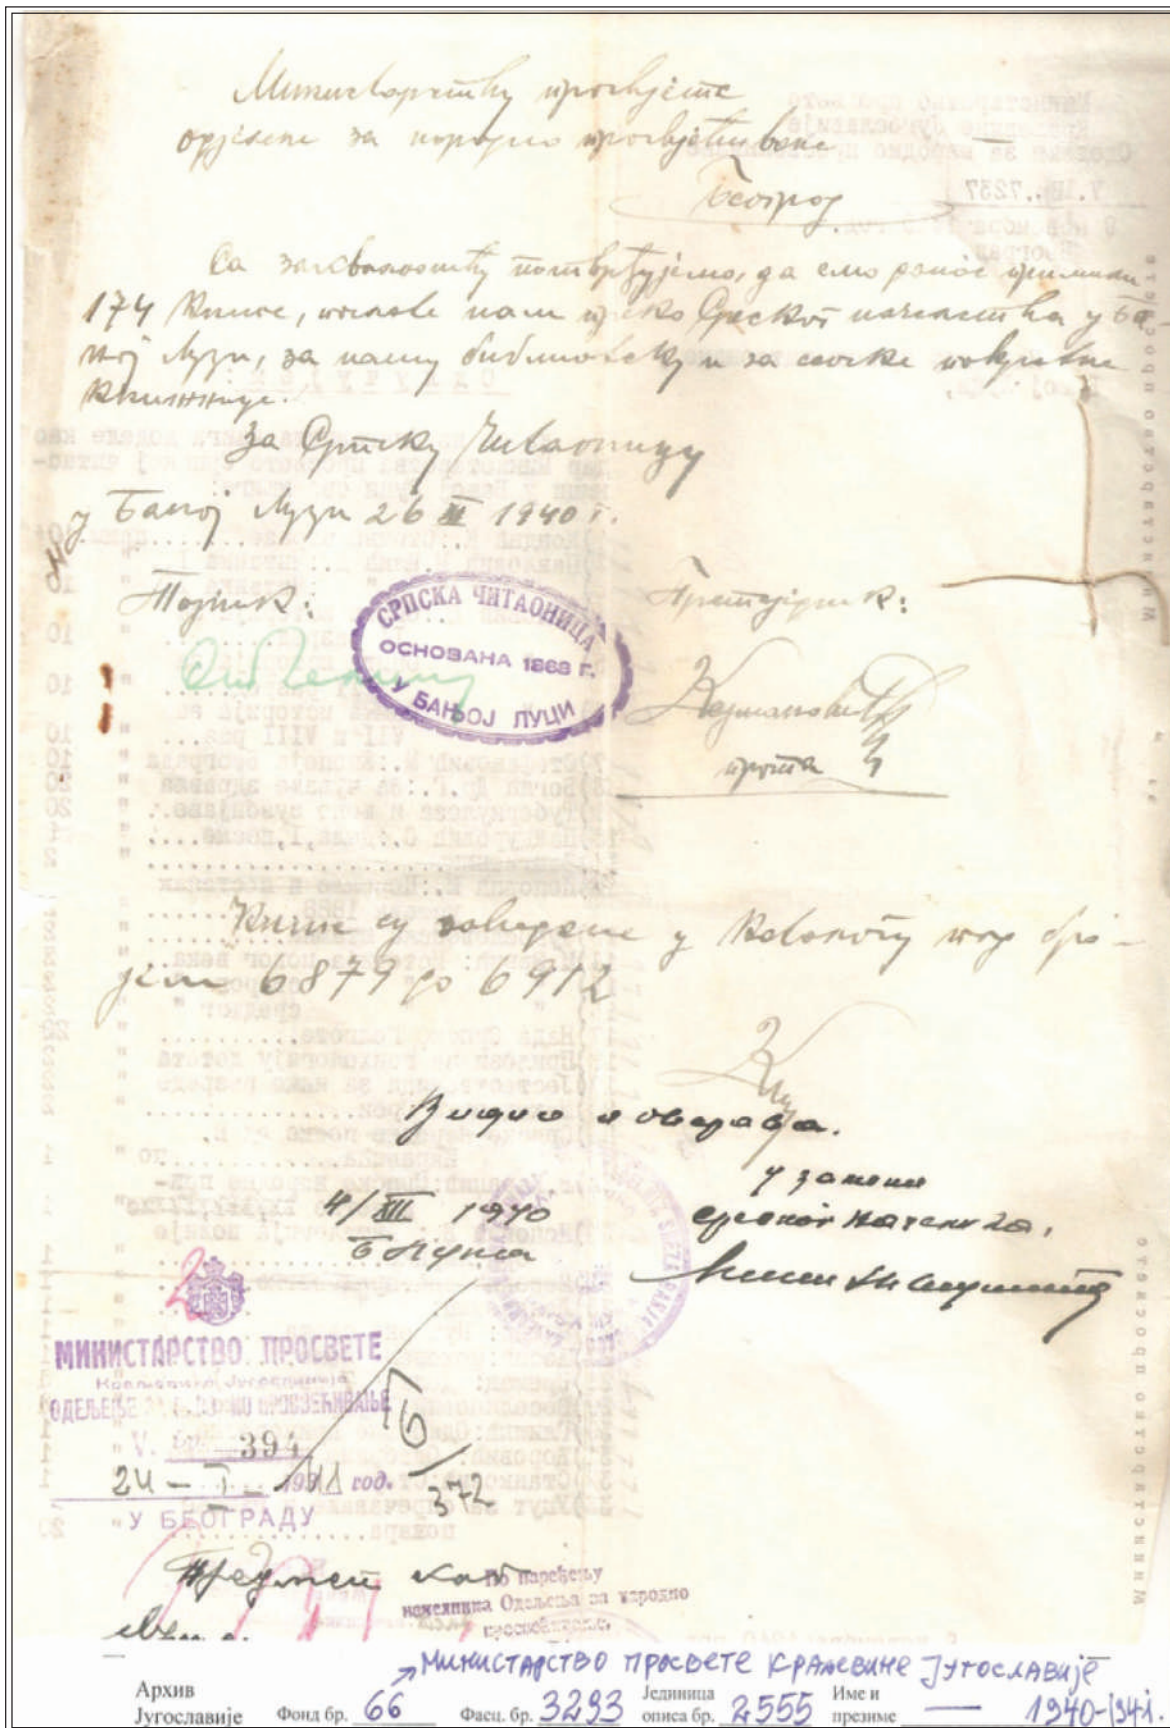 Министарству просвјете
одјелење за народно просвјећивање
Београд
Са захвалношћу потврђујемо, да смо данас примили
174 књиге, послате нам преко Среског начелства у Ба
њој Луци, за нашу библиотеку и за сеоске покретне
књижнице.
За Српску Читаоницу
у Бањој Луци 26 XI 1940 г.
Тајник:
Претсједник:
СРПСКА ЧИТАОНИЦА
ОСНОВАНА 1868 г.
У БАЊОЈ ЛУЦИ
прота
Књиге су заведене у каталогу под бро-
јем 6879 до 6912
Видио и оверава.
4/XII 1940
Б Лука
у замени
среског начелника,
2
МИНИСТАРСТВО ПРОСВЕТЕ
Краљевине Југославије
ОДЕЉЕЊЕ ЗА НАРОДНО ПРОСВЕЋИВАЊЕ
V. бр. 394
24 – I 1941 год.
У БЕОГРАДУ
372
Предмет
По наређењу
начелника Одељења за народно
просвећивање,
Министарство просвете Краљевине Југославије
Архив
Југославије Фонд бр. 66 Фасц. бр. 3293 Јединица описа бр. 2555 Име и презиме — 1940-1941.